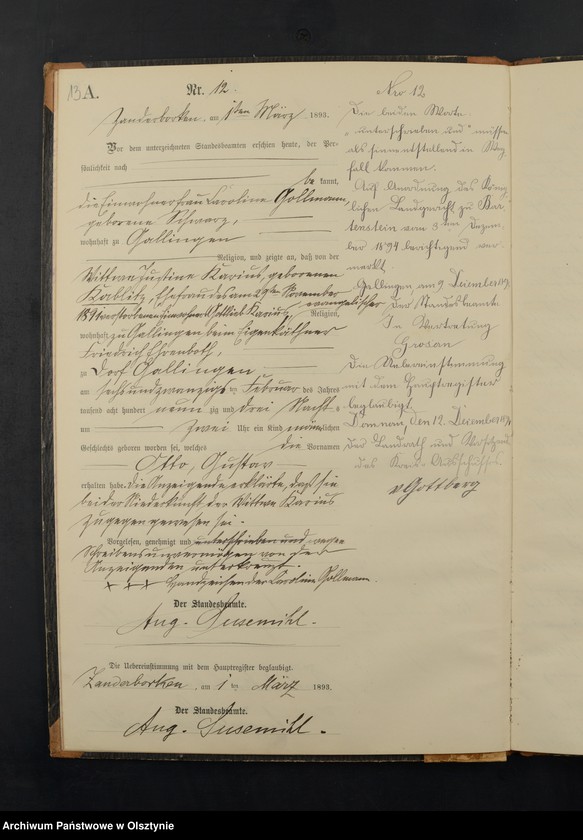 13
A.
Nr. 12.
Zanderborken, am 1ten März 1893.
Vor dem unterzeichneten Standesbeamten erschien heute, der Per-
sönlichkeit nach
be kannt,
die Einwohnerfrau Caroline Gollmann,
geborene Schwarz,
wohnhaft zu Gallingen
Religion, und zeigte an, daß von der
Wittwe Justine Karius, geborenen
Kablitz, Ehefrau des am 29ten November
1892 verstorbenen Gottlieb Karius, evangelischer
Religion,
wohnhaft zu Gallingen beim Eigenkäthner
Friedrich Ehrenboth,
zu Dorf Gallingen
am sechsundzwanzigsten Februar des Jahres
tausend acht hundert neun zig und drei Nachts
um zwei Uhr ein Kind männlichen
Geschlechts geboren worden sei, welches die Vornamen
Otto, Gustav
erhalten habe. Die Anzeigende erklärte, daß sie
bei der Niederkunft der Wittwe Karius
zugegen gewesen sei.
Vorgelesen, genehmigt und unterschrieben und wegen
Schreibensunvermögen von der
Anzeigenden unterkreuzt.
+ + + Handzeichen der Caroline Gollmann.
Der Standesbeamte.
Aug. Susemihl.
Die Uebereinstimmung mit dem Hauptregister beglaubigt.
Zanderborken, am 1 ten März 1893.
Der Standesbeamte.
Aug. Susemihl.
Nro 12
Die beiden Worte
"unterschrieben und" müssen
als sinnentstellend in Weg-
fall kommen.
Auf Anordnung des König-
lichen Landgericht zu Bar-
tenstein vom 3. Dezem-
ber 1894 berichtigend ver-
merkt.
Gallingen am 9 Dezember 1894
Der Standesbeamte
In Vertretung
Grosan
Die Uebereinstimmung
mit dem Hauptregister
beglaubigt.
Domnau, den 12. Dezember 1894
Der Landrath und Vorsitzende
des Kreis-Ausschusses
v Gottberg
Archiwum Państwowe w Olsztynie